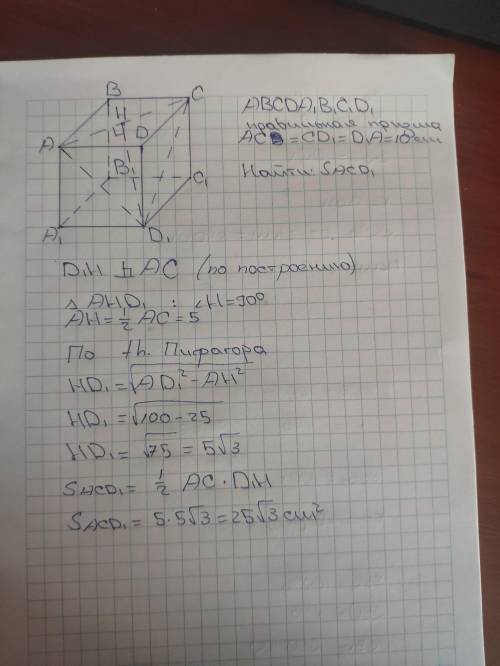 B
C
H
A
D
B₁
C₁
A₁
D₁
ABCDA₁B₁C₁D₁
правильная призма
AC = CD₁ = D₁A = 10 см
Найти: SACD₁
D₁H ⊥ AC (по построению)
△ AHD₁ : ∠H = 90°
AH = ½ AC = 5
По th. Пифагора
HD₁ = √AD₁² - AH²
HD₁ = √100 - 25
HD₁ = √75 = 5√3
SACD₁ = ½ AC · D₁H
SACD₁ = 5 · 5√3 = 25√3 см²